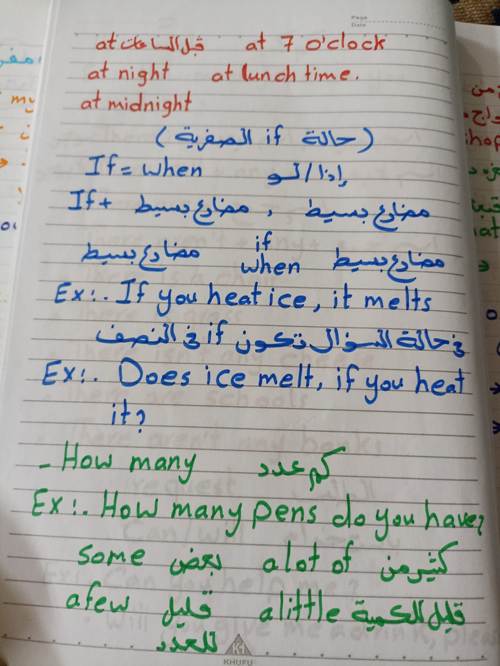 Page
Date
at قبل الساعات at 7 o'clock
at night at lunch time.
at midnight
(حالة if الصفرية)
If = when إذا / لو
If + مضارع بسيط , مضارع بسيط
مضارع بسيط if when مضارع بسيط
Ex:. If you heat ice, it melts
في حالة السؤال تكون if في النصف
Ex:. Does ice melt, if you heat
it?
- How many كم عدد
Ex:. How many pens do you have?
some بعض a lot of كثير من
a few قليل للعدد a little قليل الكمية
KHUFU